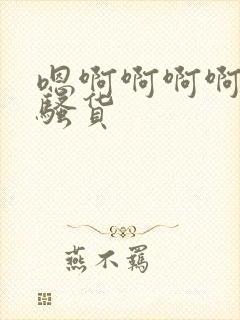 嗯啊啊啊啊
骚货
燕不羁